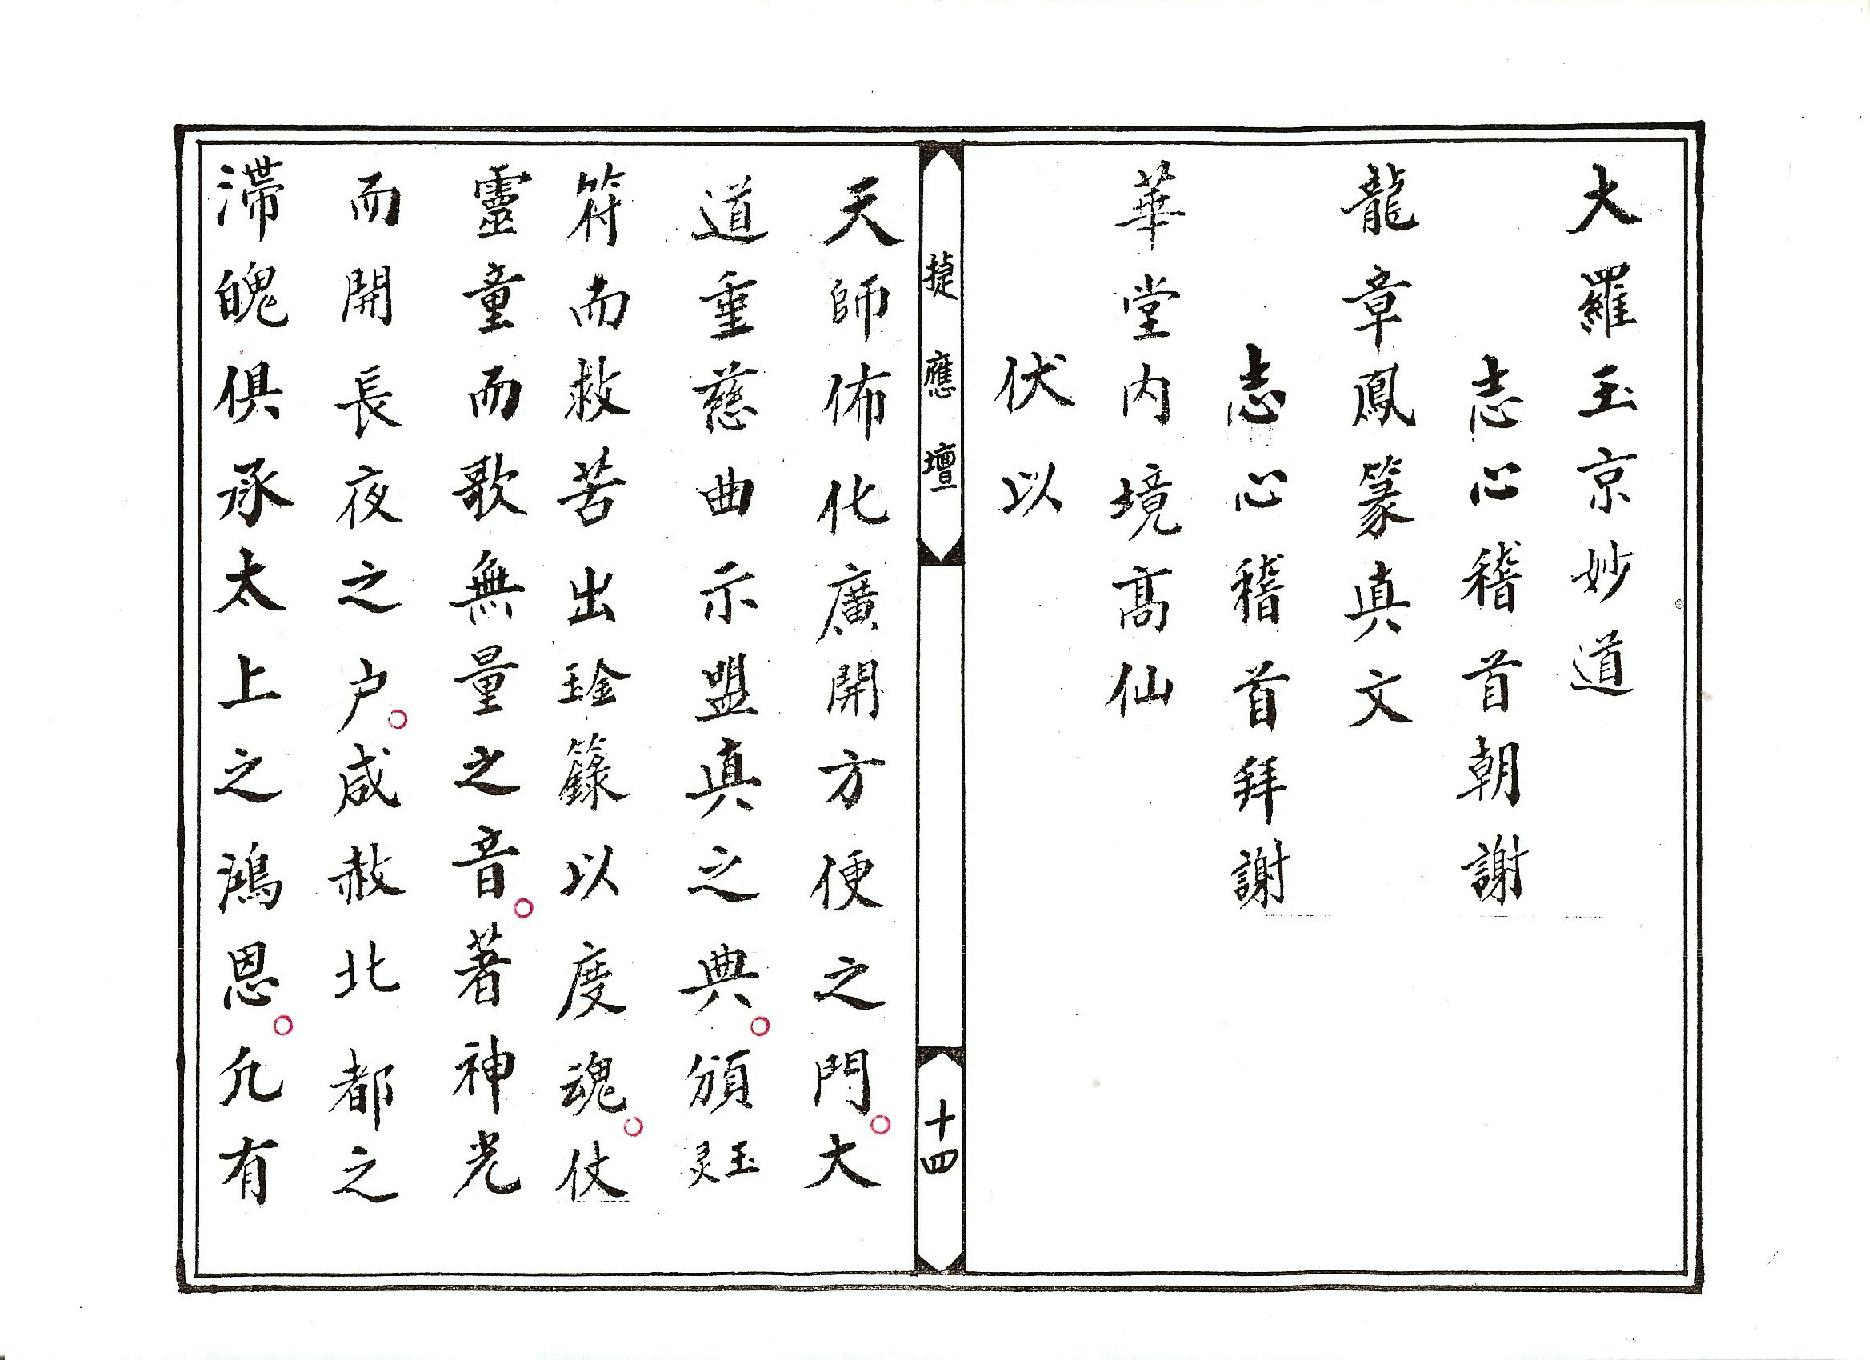 大羅玉京妙道
志心稽首朝謝
龍章鳳篆真文
志心稽首拜謝
華堂内境高仙
伏以
㨗應壇
十四
天師佈化廣開方便之門。大
道垂慈曲示盟真之典。頒灵玉
符而救苦出琻籙以度魂。仗
靈童而歌無量之音。著神光
而開長夜之户。咸赦北都之
滯魄俱承太上之鴻恩。凢有